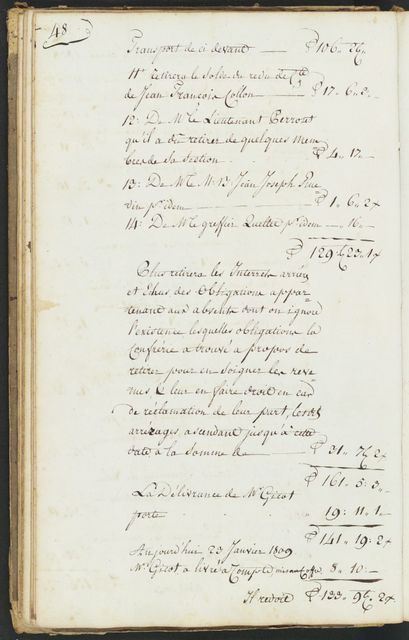 48
Transport de ci devant — 106. 26.
11° retirera le Solde du redu de
de Jean François Collon — 17. 6. 3.
12: De Mr le Lieutenant Perrout
qu'il a dû retirer de quelques mem
bres de sa section . . . 4. 17. –
13: De Mr. Jean Joseph Rue
din pr idem — 1. 6. 2
14: De Mr le greffier Quellet pr idem — 16. –
129 23. 1
Plus retirera les Interrets arriérés
et Echus, des Obligations appar
tenant aux absents dont on ignore
l'existence lesquelles obligations la
Confrérie a trouvé à propos de
retirer pour en soigner les reve
nus, & leur en faire droit en cas
de réclamation de leur part
arrérages, ascendant jusqu'à cette
date, à la Somme de — 31. 7 2
161. 5. 3.
La Délivrance de Mr Girot
porte . . . 19. 11. 1
141. 19. 2
Aujourd'hui 23 Janvier 1809
Mr Girot a livré à Compte 8. 10. –
Il redoit 133. 9 2